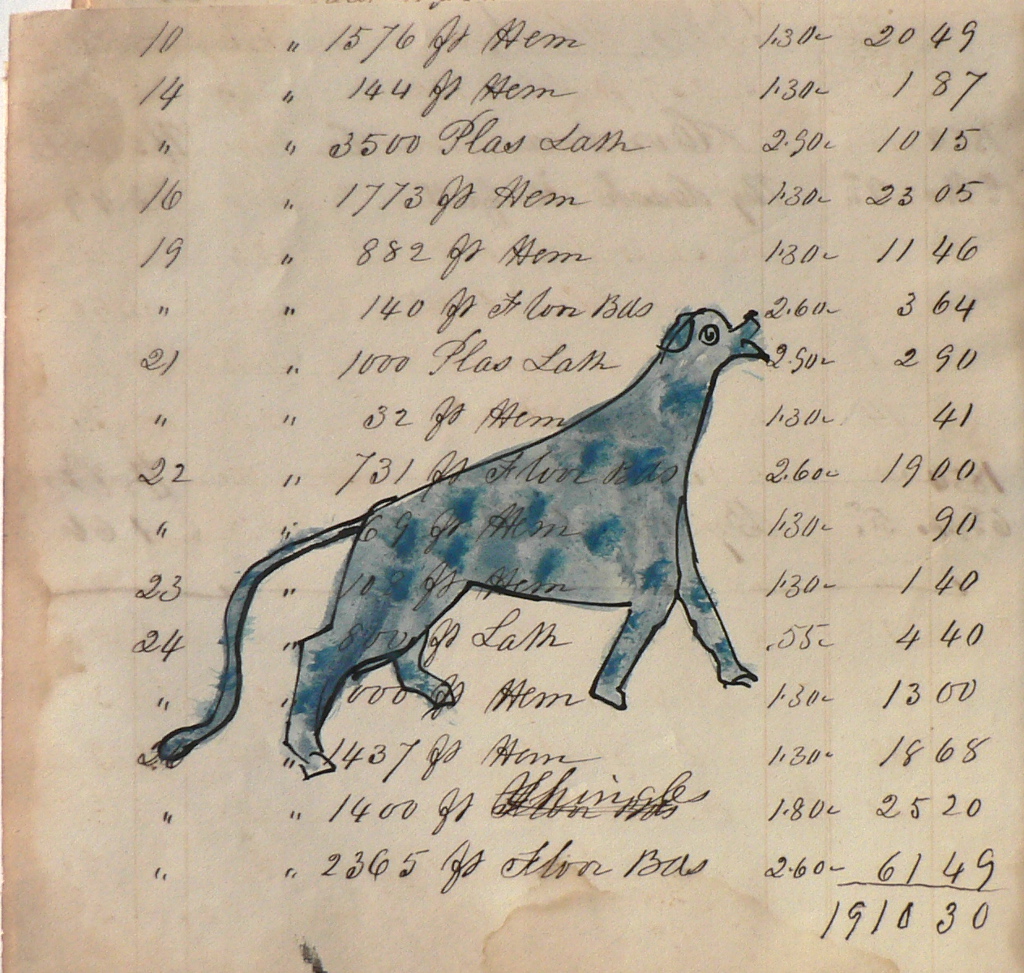 10 " 1576 ft Hem 1.30 20 49
14 " 144 ft Hem 1.30 1 87
" " 3500 Plas Lath 2.90 10 15
16 " 1773 ft Hem 1.30 23 05
19 " 882 ft Hem 1.30 11 46
" " 140 ft Floor Bds 2.60 3 64
21 " 1000 Plas Lath 2.90 2 90
" " 32 ft Hem 1.30 41
22 " 731 ft Floor Bds 2.60 19 00
" 69 ft Hem 1.30 90
23 " 108 ft Hem 1.30 1 40
24 " 800 ft Lath .55 4 40
" " 000 ft Hem 1.30 13 00
" 1437 ft Hem 1.30 18 68
" " 1400 ft Shingles 1.80 25 20
" " 2365 ft Floor Bds 2.60 61 49
1910 30